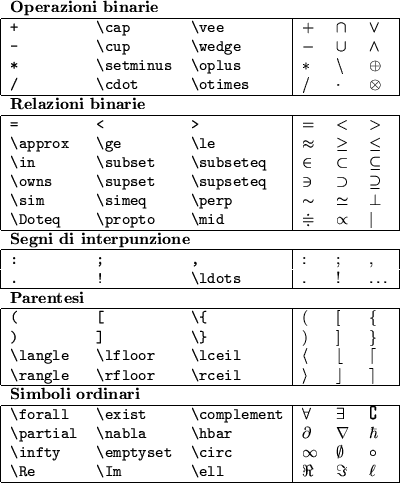 Operazioni binarie
+ \cap \vee + ∩ ∨
- \cup \wedge − ∪ ∧
* \setminus \oplus ∗ \ ⊕
/ \cdot \otimes / · ⊗
Relazioni binarie
= < > = < >
\approx \ge \le ≈ ≥ ≤
\in \subset \subseteq ∈ ⊂ ⊆
\owns \supset \supseteq ∋ ⊃ ⊇
\sim \simeq \perp ∼ ≃ ⊥
\Doteq \propto \mid ≑ ∝ |
Segni di interpunzione
: ; , : ; ,
. ! \ldots . ! …
Parentesi
( [ \{ ( [ {
) ] \} ) ] }
\langle \lfloor \lceil ⟨ ⌊ ⌈
\rangle \rfloor \rceil ⟩ ⌋ ⌉
Simboli ordinari
\forall \exist \complement ∀ ∃ ∁
\partial \nabla \hbar ∂ ∇ ℏ
\infty \emptyset \circ ∞ ∅ ∘
\Re \Im \ell ℜ ℑ ℓ